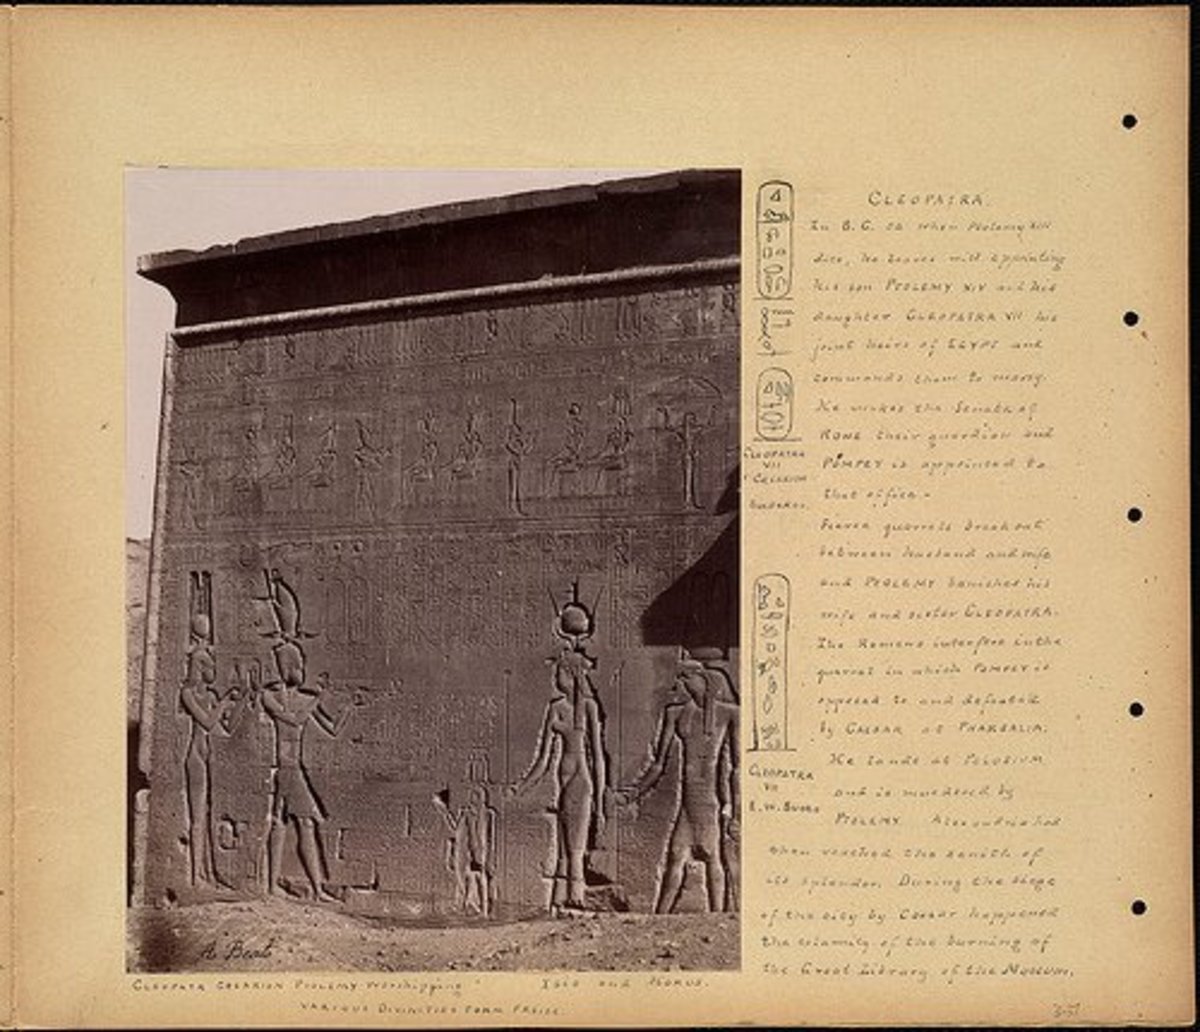 CLEOPATRA.
In B.C. 52 when Ptolemy XIII
dies, he leaves will appointing
his son PTOLEMY XIV and his
daughter CLEOPATRA VII his
joint heirs of EGYPT and
commands them to marry.
He makes the Senate of
ROME their guardian and
POMPEY is appointed to
that office.
Fierce quarrels break out
between husband and wife
and PTOLEMY banishes his
wife and sister CLEOPATRA.
The Romans interfere in the
quarrel in which POMPEY is
opposed to and defeated
by CAESAR at PHARSALIA.
He lands at PELUSIUM
and is murdered by
PTOLEMY Alexandria had
then reached the zenith of
its splendor. During the siege
of the city by Caesar happened
the calamity of the burning of
the Great Library of the Museum.
CLEOPATRA
VII
CLEOPATRA
VII
A Beato
CLEOPATR CEASARION PTOLEMY Worshipping ISIS and HORUS.
VARIOUS DIVINITIES FORM FRIESE.